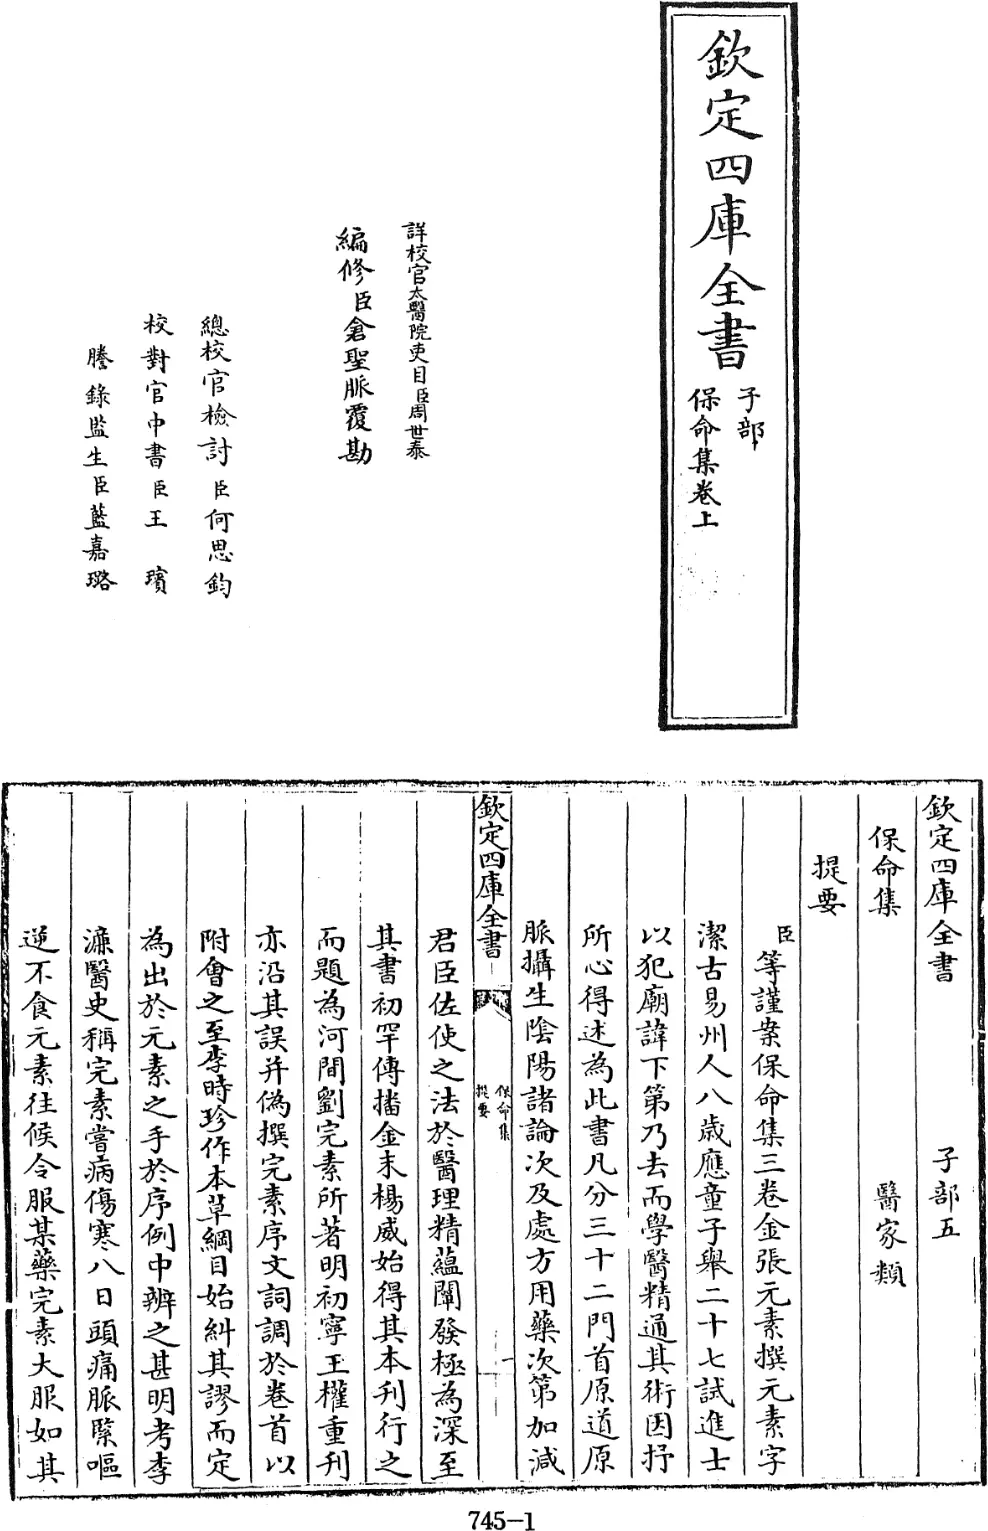 欽定四庫全書
子部
保命集卷上
詳校官太醫院吏目臣周世泰
編修臣倉聖脈覆勘
總校官檢討臣何思鈞
校對官中書臣王瑸
謄錄監生臣藍嘉璐
欽定四庫全書 子部五
保命集 醫家類
提要
臣等謹案保命集三卷金張元素撰元素字
潔古易州人八歲應童子舉二十七試進士
以犯廟諱下第乃去而學醫精通其術因抒
所心得述為此書凡分三十二門首原道原
脈攝生陰陽諸論次及處方用藥次第加減
欽定四庫全書
保命集
提要
一
君臣佐使之法於醫理精蘊闡發極為深至
其書初罕傳播金末楊威始得其本刊行之
而題為河間劉完素所著明初寧王權重刊
亦沿其誤并偽撰完素序文詞調於卷首以
附會之至李時珍作本草綱目始糾其謬而定
為出於元素之手於序例中辨之甚明考李
濂醫史稱完素嘗病傷寒八日頭痛脈緊嘔
逆不食元素往候令服某藥完素大服如其
745-1